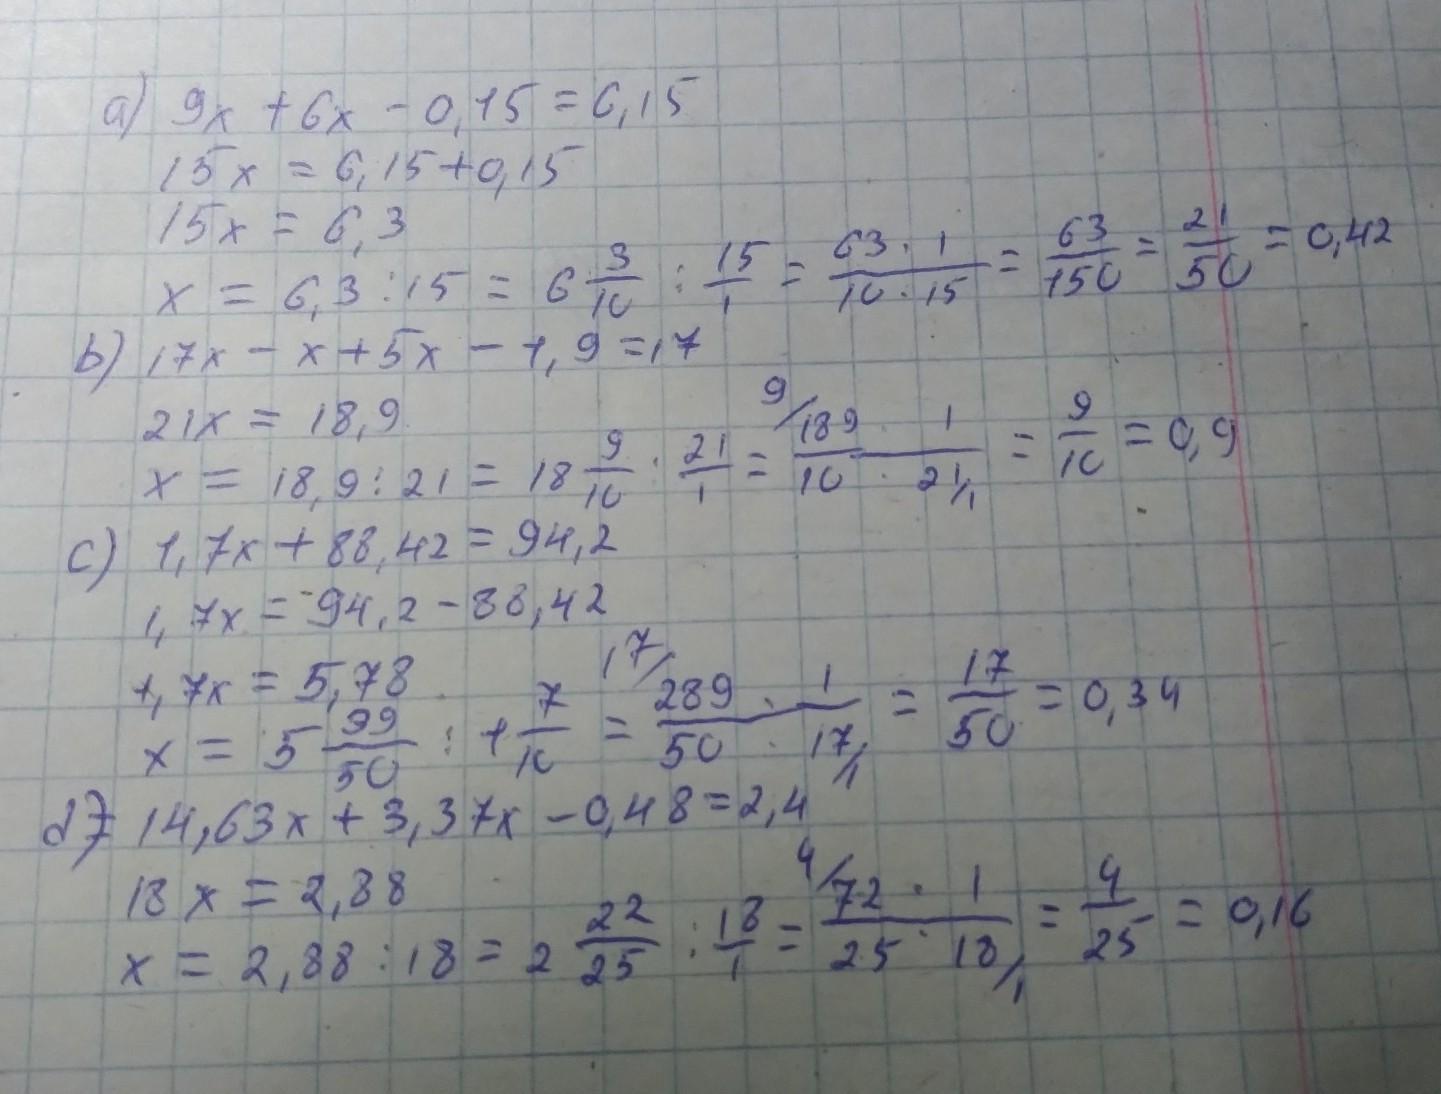 a) 9x + 6x - 0,15 = 6,15
15x = 6,15 + 0,15
15x = 6,3
x = 6,3 : 15 = 6 3/10 : 15/1 = 63 · 1 / 10 · 15 = 63/150 = 21/50 = 0,42
b) 17x - x + 5x - 1,9 = 17
21x = 18,9
x = 18,9 : 21 = 18 9/10 : 21/1 = 9/ 189 · 1 / 10 · 21/1 = 9/10 = 0,9
c) 1,7x + 88,42 = 94,2
1,7x = 94,2 - 88,42
1,7x = 5,78
x = 5 99/50 : 1 7/10 = 17/ 289 · 1 / 50 · 17/1 = 17/50 = 0,34
d) 14,63x + 3,37x - 0,48 = 2,4
18x = 2,88
x = 2,88 : 18 = 2 22/25 : 18/1 = 4/ 72 · 1 / 25 · 18/1 = 4/25 = 0,16